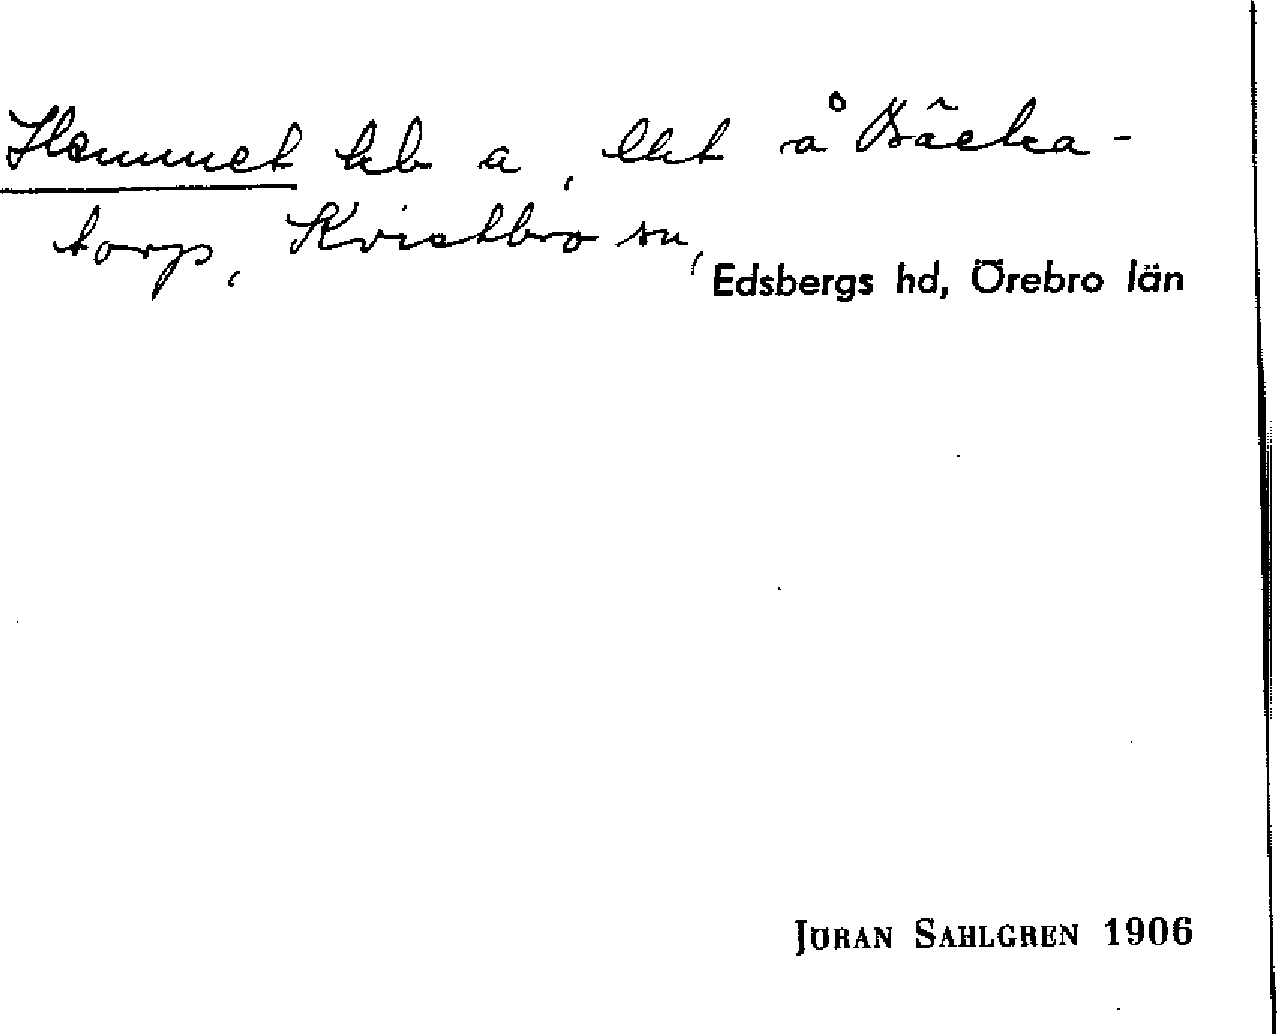 Hemmet hb a, lht å Bäcka-
torp, Kvistbro sn,
Edsbergs hd, Örebro län
JÖRAN SAHLGREN 1906